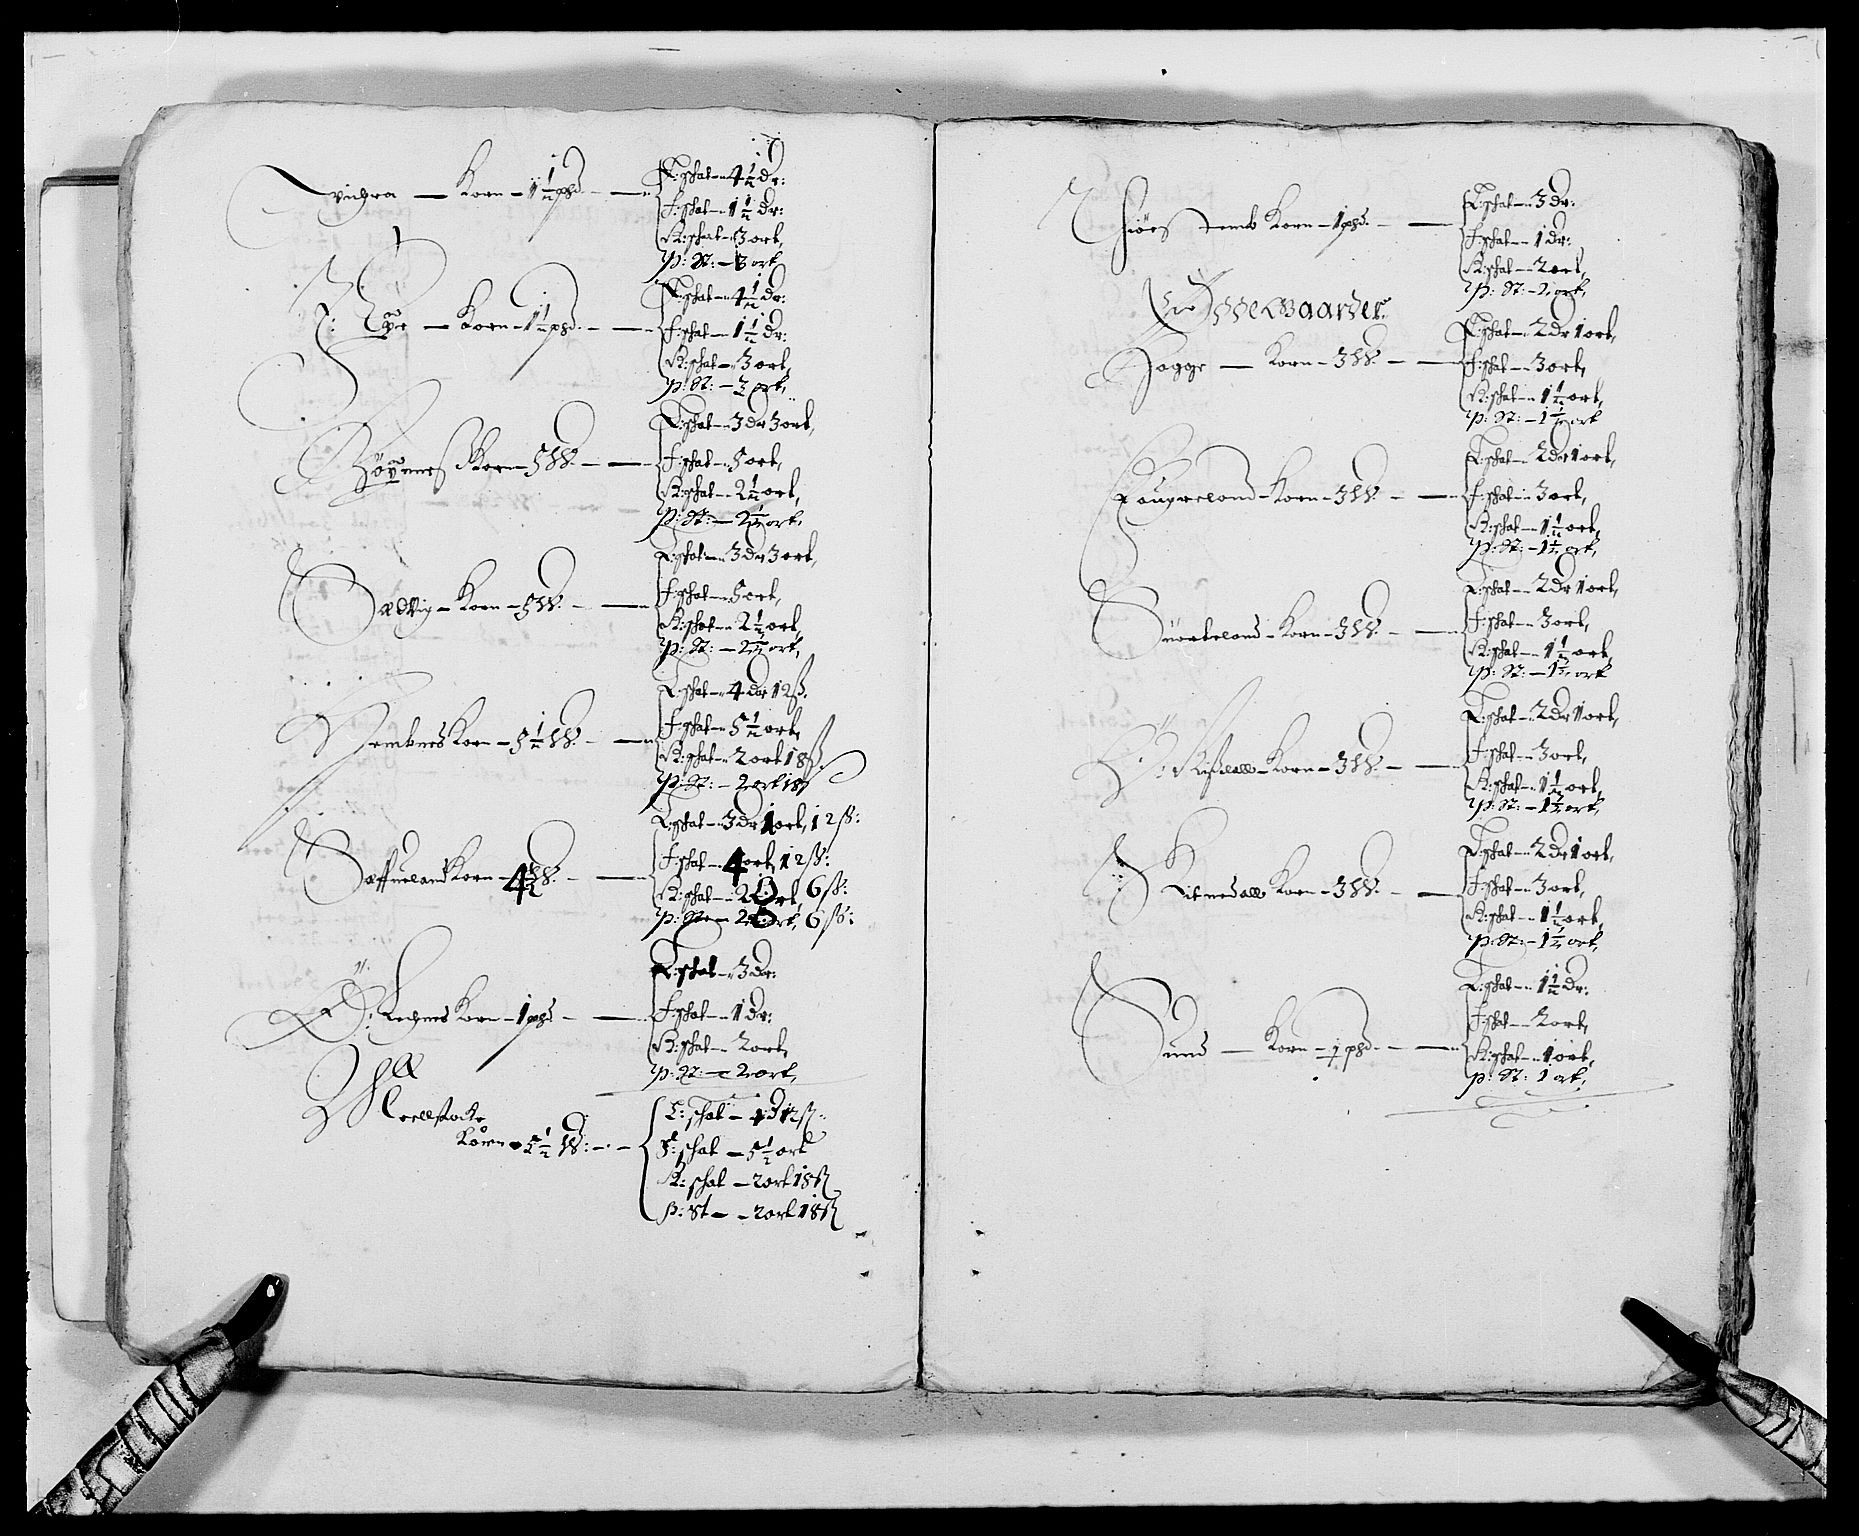 Vighra — Korn — 1 1/2 pd. —
L: schat — 4 1/2 dr:
f: schat — 1 1/2 dr:
K: schat — 3 ort,
P: St: — 3 ort
Korn — 1 1/2 pd. —
L: schat — 4 1/2 dr:
f: schat — 1 1/2 dr:
K: schat — 3 ort,
P: St: — 3 ort,
Korn — 5 W. —
L: schat — 3 dr 3 ort,
f: schat — 5 ort,
K: schat — 2 1/2 ort,
P: St: — 2 1/2 ort,
Sædvig — Korn — 5 W. —
L: schat — 3 dr 3 ort,
f: schat — 5 ort,
K: schat — 2 1/2 ort,
P: St: — 2 1/2 ort,
Korn — 5 1/2 W. —
L: schat — 4 dr 12 ß.
f: schat — 5 1/2 ort,
K: schat — 2 ort 18 ß.
P: St: — 2 ort 18 ß
Korn — 4 1/2 W. —
L: schat — 3 dr 1 ort, 12 ß:
f: schat — 4 ort 12 ß:
K: schat — 2 ort, 6 ß:
P: St — 2 ort, 6 ß:
Korn — 1 pd —
L: schat — 3 dr:
f: schat — 1 dr:
K: schat — 2 ort,
P: St: — 2 ort,
Korn — 5 1/2 W: —
L: schat — 4 D 12 ß:
F: schat — 5 1/2 ort
K: schat — 2 ort 18 ß
P: St — 2 ort 18 ß
Korn — 1 pd. —
L: schat — 3 dr:
f: schat — 1 dr:
K: schat — 2 ort,
P: St: — 2 ort,
Ødegaarder
Hogge — Korn — 3 W. —
L: schat — 2 dr 1 ort,
f: schat — 3 ort,
K: schat — 1 1/2 ort,
P: St: — 1 1/2 ort
Korn — 3 W. —
L: schat — 2 dr 1 ort,
f: schat — 3 ort,
K: schat — 1 1/2 ort,
P: St: — 1 1/2 ort,
Korn — 3 W. —
L: schat — 2 dr 1 ort,
f: schat — 3 ort,
K: schat — 1 1/2 ort,
P: St: — 1 1/2 ort
Korn — 3 W. —
L: schat — 2 dr 1 ort,
f: schat — 3 ort,
K: schat — 1 1/2 ort,
P: St: — 1 1/2 ort,
Korn — 3 W. —
L: schat — 2 dr 1 ort,
f: schat — 3 ort,
K: schat — 1 1/2 ort,
P: St: — 1 1/2 ort,
Sund — Korn — 1/2 pd. —
L: schat — 1 1/2 dr:
f: schat — 2 ort,
K: schat — 1 ort,
P: St: 1 ort,